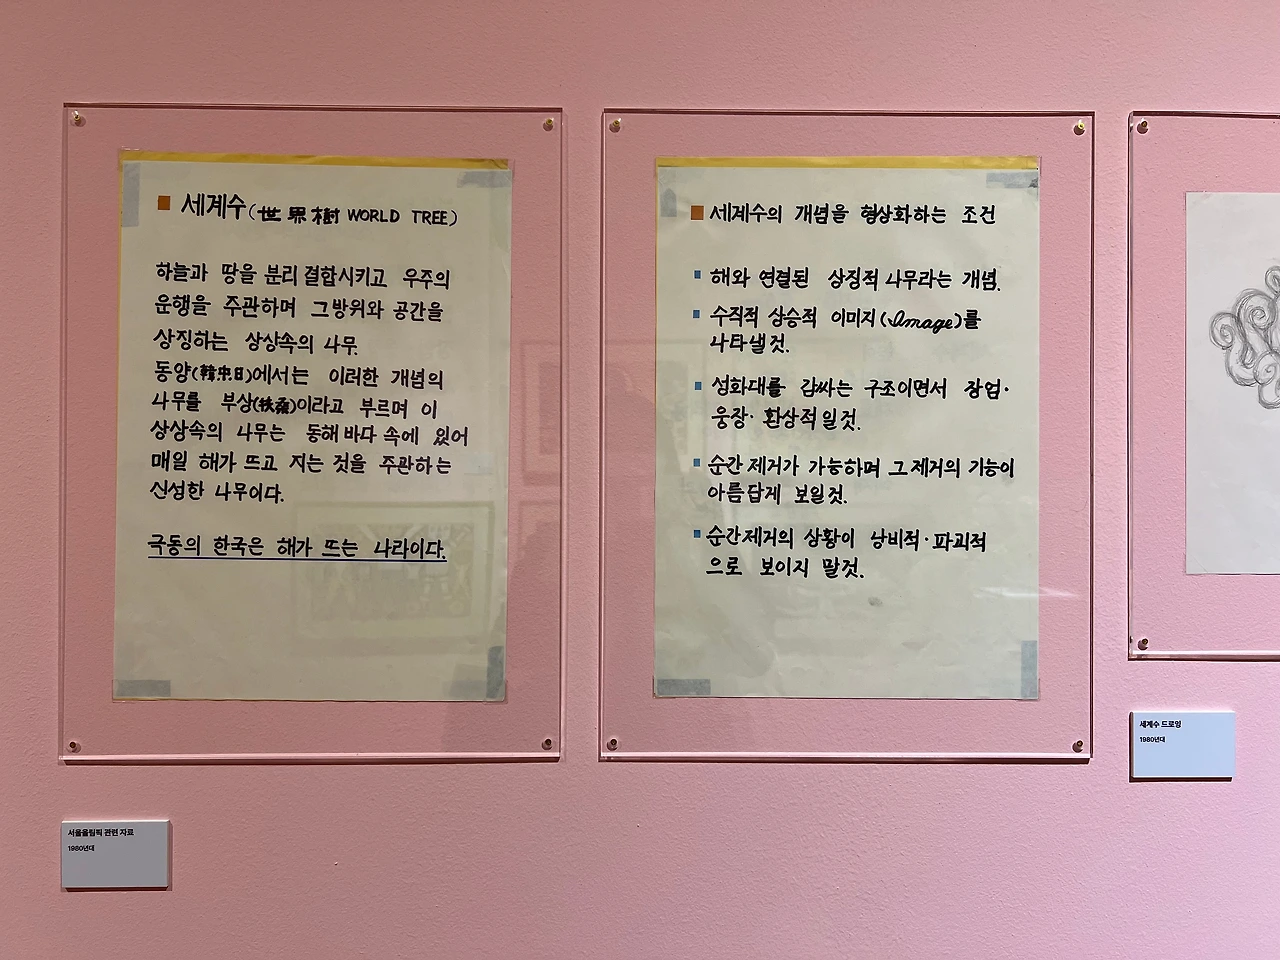 세계수(世界樹 WORLD TREE)
하늘과 땅을 분리 결합시키고 우주의
운행을 주관하며 그 방위와 공간을
상징하는 상상속의 나무.
동양(韓中日)에서는 이러한 개념의
나무를 부상(扶桑)이라고 부르며 이
상상속의 나무는 동해 바다 속에 있어
매일 해가 뜨고 지는 것을 주관하는
신성한 나무이다.
극동의 한국은 해가 뜨는 나라이다.
세계수의 개념을 형상화하는 조건
해와 연결된 상징적 나무라는 개념.
수직적 상승적 이미지(Image)를
나타낼것.
성화대를 감싸는 구조이면서 장엄·
웅장·환상적일것.
순간 제거가 가능하며 그 제거의 기능이
아름답게 보일것.
순간제거의 상황이 낭비적·파괴적
으로 보이지 말것.
세계수 드로잉
1980년대
서울올림픽 관련 자료
1980년대